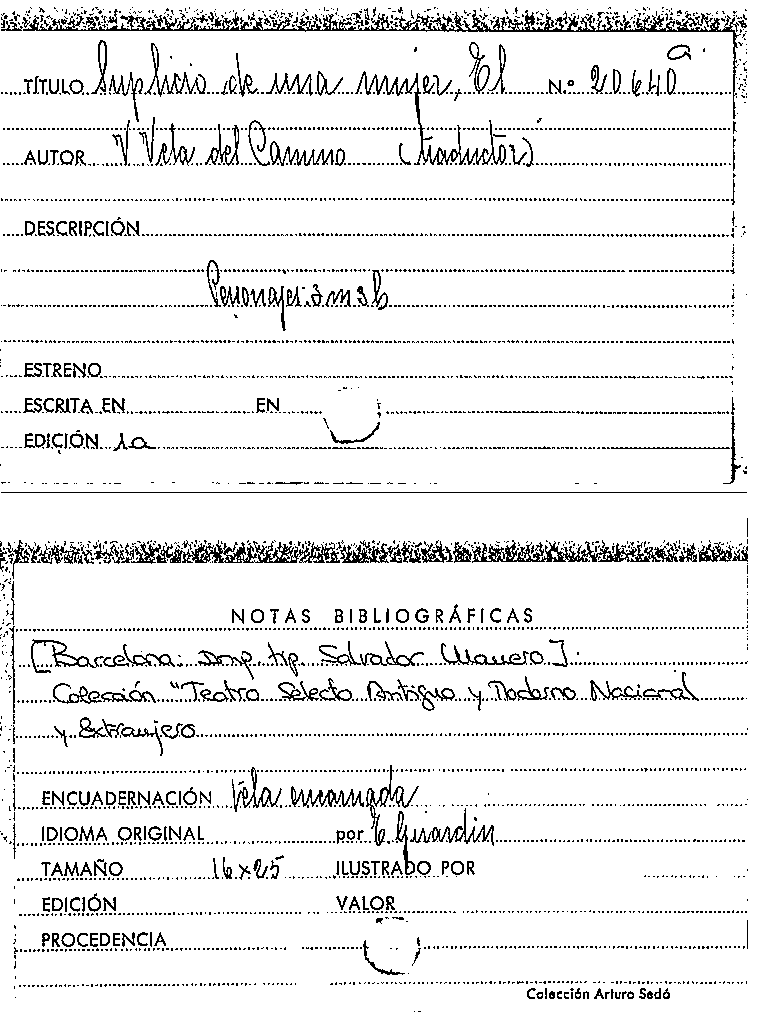 TÍTULO Suplicio de una mujer, El N.º 20640 a.
AUTOR V Vela del Camino (traductor)
DESCRIPCIÓN
Personajes: 3 m 3 h
ESTRENO
ESCRITA EN EN
EDICIÓN 1a
NOTAS BIBLIOGRÁFICAS
[Barcelona: Imp. tip. Salvador Manero].
Colección "Teatro Selecto Antiguo y Moderno Nacional
y Extranjero
ENCUADERNACIÓN tela encarnada
IDIOMA ORIGINAL por E. Girardin
TAMAÑO 16x25 ILUSTRADO POR
EDICIÓN VALOR
PROCEDENCIA
Colección Arturo Sedó